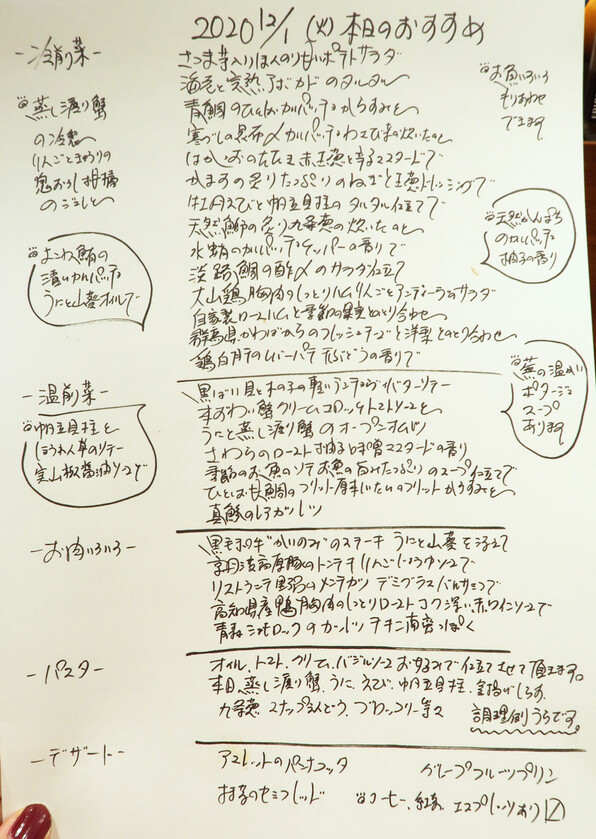 2020 12/1 (火) 本日のおすすめ
-冷前菜-
さつま芋入りほんのり甘いポテトサラダ
海老と完熟アボカドのタルタル
青鯛のひとくちカルパッチョ からすみと
寒ブリの昆布〆カルパッチョ
赤玉葱と
マスタードで
かますの炙り たっぷりのねぎと玉葱ドレッシングで
牡丹えびと帆立貝柱のタルタル仕立てで
天然鰤の炙り 九条葱の炊いたのと
水蛸のカルパッチョ ケッパーの香りで
淡路鯛の酢〆のサラダ仕立て
大山鶏胸肉のしっとりハム りんごとアンディーヴのサラダ
自家製ロースハムと季節の果実との取り合わせ
群馬県かわばからのフレッシュチーズと洋梨との取り合わせ
鶏白肝のレバーパテ 干しぶどうの香りで
蒸し渡り蟹
の冷製
りんごときゅうりの
鬼おろし 柑橘
のジュレと
よこわ鮪の
漬けカルパッチョ
うにと山葵オイルで
お魚いろいろ
もりあわせ
できます
天然かんぱち
のカルパッチョ
柚子の香り
-温前菜-
黒ばい貝と木の子の軽いアンチョビバターソテー
本ずわい蟹クリームコロッケ トマトソースと
うにと蒸し渡り蟹のオープンオムレツ
さわらのロースト 柚子味噌マスタードの香り
季節のお魚のソテー お魚の旨みたっぷりのスープ仕立てで
ひとくち甘鯛のフリット 厚切じいたけのフリット からすみと
真鯵のレアカツレツ
帆立貝柱と
ほうれん草のソテー
実山椒醤油ソースで
蕪の温かい
ポタージュ
スープ
あります
-お肉いろいろ-
黒毛和牛"かいのみ"のステーキ うにと山葵を添えて
豚のトンテキ りんごじょうゆソースで
リストランテ野郎のメンチカツ デミグラスバルサミコで
高知県産鴨胸肉のしっとりロースト コク深い赤ワインソースで
青森シャモロックの
チキン南蛮っぽく
-パスタ-
オイル、トマト、クリーム、バジルソース お好みで仕立てさせて頂きます。
本日、蒸し渡り蟹、うに、えび、帆立貝柱、釜揚げしらす、
九条葱、スナップえんどう、ブロッコリー等々
調理例 うらです。
-デザート-
アマレットのパンナコッタ
グレープフルーツプリン
お芋のセミフレッド
コーヒー、紅茶、エスプレッソあり